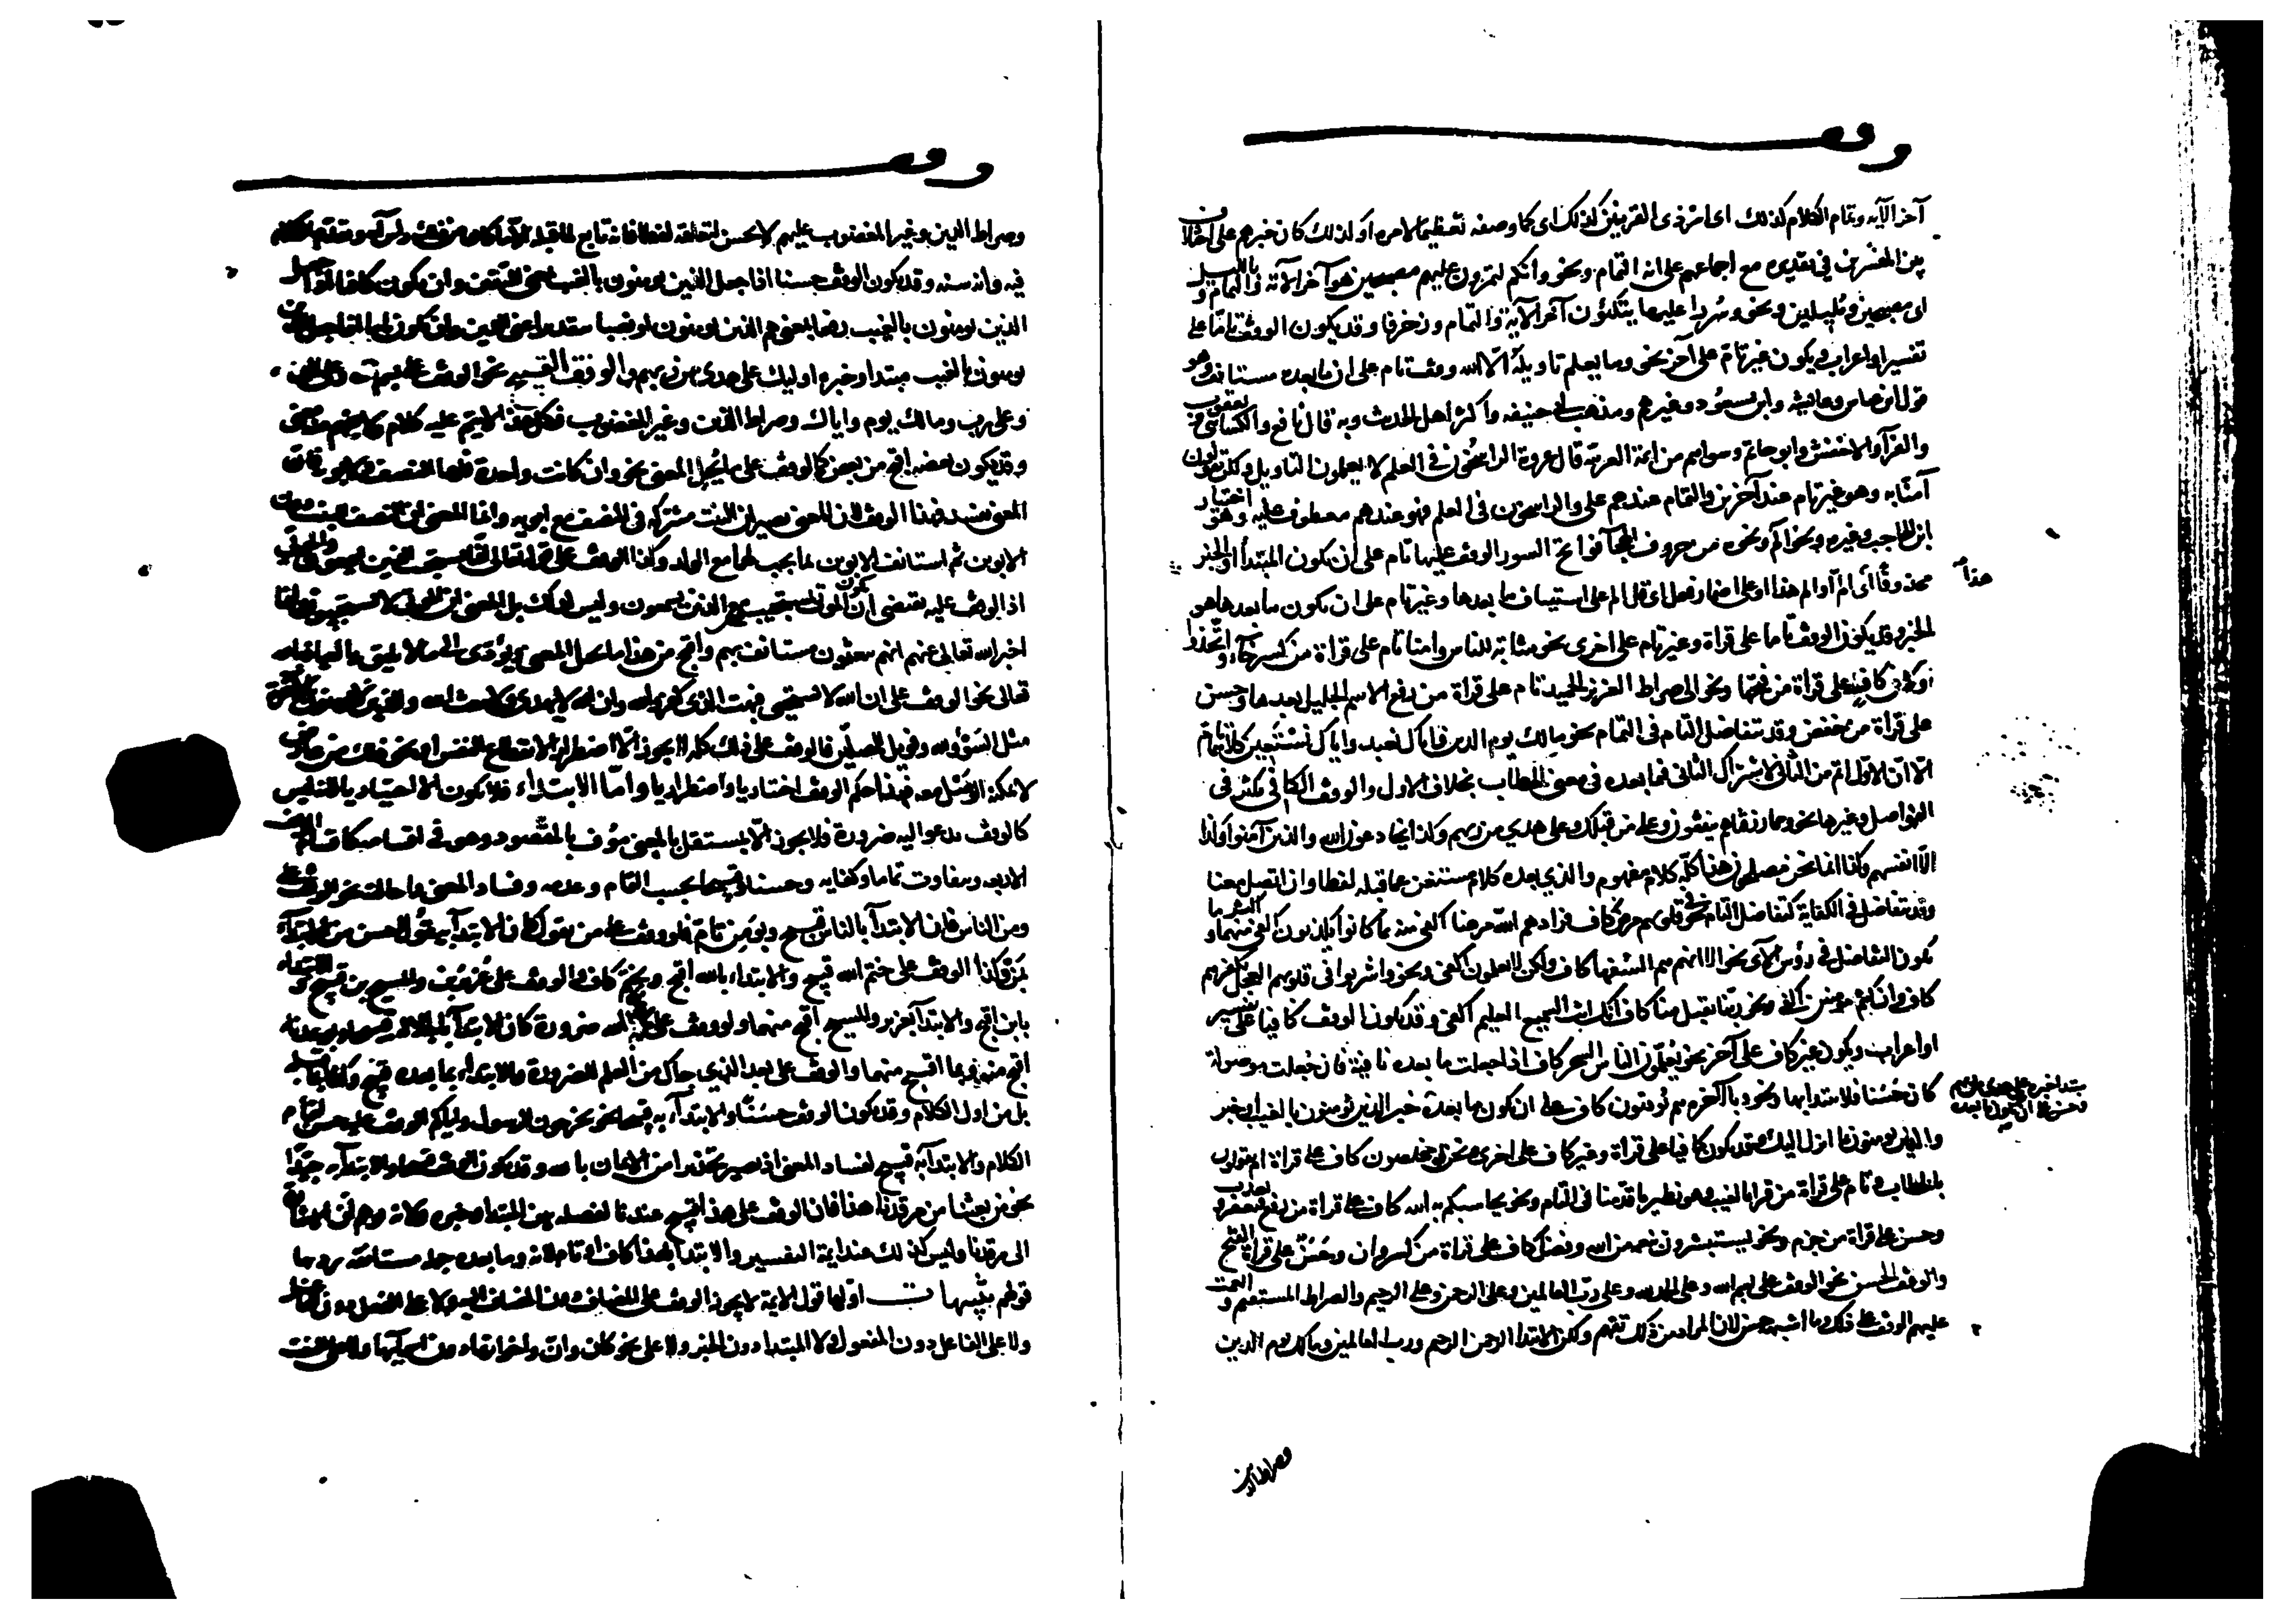 وقف
آخر الآية وتمام الكلام كذلك اى امر ذى القرنين كذلك اى كما وصفه تعظيما لامره او كذلك كان خبرهم على اختلاف
بين المفسرين في تقديره مع اجماعهم على انه التمام ونحو وانكم لتمرون عليهم مصبحين هو آخر الآية والتمام وبالليل
اى مصبحين ومليلين ونحو وسررا عليها يتكئون آخر الآية والتمام وزخرفا وقد يكون الوقف تاما على
تفسير او اعراب ويكون غير تام على آخر نحو وما يعلم تاويله الا الله وقف تام على ان ما بعده مستانف وهو
قول ابن عباس وعائشه وابن مسعود وغيرهم ومذهب ابى حنيفه واكثر اهل الحديث وبه قال نافع والكسائى ويعقوب
والفرآ والاخفش وابو حاتم وسواهم من ائمة العربية قال عروة الراسخون في العلم لا يعلمون التاويل ولكن يقولون
آمنا به وهو غير تام عند آخرين والتمام عندهم على والراسخون في العلم فهو عندهم معطوف عليه وهو اختيار
ابن الحاجب وغيره ونحو الم ونحوه من حروف الهجآ فواتح السور الوقف عليها تام على ان يكون المبتدأ او الخبر
محذوفا اى الم هذا او هذا الم او على اضمار فعل اى قل الم على استيناف ما بعدها وغير تام على ان يكون ما بعدها هو
الخبر وقد يكون الوقف تاما على قراة وغير تام على اخرى نحو مثابة للناس وامنا تام على قراة من كسر خآء واتخذوا
وكاف على قراة من فتحها ونحو الى صراط العزيز الحميد تام على قراة من رفع الاسم الجليل بعدها وحسن
على قراة من خفض وقد يتفاضل التام في التمام نحو مالك يوم الدين واياك نعبد واياك نستعين كلاهما تام
الا ان الاول اتم من الثانى لاشتراك الثانى فيما بعده في معنى الخطاب بخلاف الاول والوقف الكافى يكثر في
الفواصل وغيرها نحو ومما رزقناهم ينفقون وعلى من قبلك وعلى هدى من ربهم وكذا يخادعون الله والذين آمنوا وكذا
الا انفسهم وكذا انما نحن مصلحون هذا كله كلام مفهوم والذي بعده كلام مستغن عما قبله لفظا وان اتصل معنا
وقد يتفاضل في الكفاية كتفاضل التام نحو في قلوبهم مرض كاف فزادهم الله مرضا اكفى منه بما كانوا يكذبون اكفى منهما واكثر ما
يكون التفاضل في رؤس الآى نحو الا انهم هم السفهآ كاف ولكن لا يعلمون اكفى ونحو واشربوا في قلوبهم العجل بكفرهم
كاف وان كنتم مومنين اكفى ونحو ربنا تقبل منا كاف انك انت السميع العليم اكفى وقد يكون الوقف كافيا على تفسير
او اعراب ويكون غير كاف على آخر نحو يعلمون الناس السحر كاف اذا جعلت ما بعده نافية فان جعلت موصولة
كان حسنا فلا يبتدا بها ونحو وبالآخرة هم يوقنون كاف على ان يكون ما بعده مبتدا خبره على هدى من ربهم وحسن على ان يكون ما بعده خبر الذين يؤمنون بالغيب او خبر
والذين يؤمنون بما انزل اليك وقد يكون كافيا على قراة وغير كاف على اخرى نحو ونحن له مخلصون كاف على قراة ام تقولون
بالخطاب وتام على قراة من قرا بالغيب وهو نظير ما قدمنا في التام ونحو يحاسبكم به الله كاف على قراة من رفع فيغفر ويعذب
وحسن على قراة من جزم ونحو يستبشرون بنعمه من الله وفضل كاف على قراة من كسر وان وحسن على قراة الفتح
والوقف الحسن نحو الوقف على بسم الله وعلى الحمد لله وعلى رب العالمين وعلى الرحمن وعلى الرحيم والصراط المستقيم وانعمت
عليهم الوقف على ذلك وما اشبهه حسن لان المراد من ذلك يفهم ولكن الابتدا الرحمن الرحيم ورب العالمين ومالك يوم الدين
وصراط الذين
وقف
وصراط الذين وغير المغضوب عليهم لا يحسن لتعلقه لفظا فانه تابع لما قبله الا ما كان من ذلك راس آية وتقدم الكلام
فيه وانه سنه وقد يكون الوقف حسنا
الذين يومنون بالغيب
يومنون بالغيب مبتدا وخبره اوليك على هدى من ربهم والوقف القبيح نحو الوقف على بسم
وعلى رب ومالك يوم واياك وصراط الذين وغير المغضوب فكل هذا لا يتم عليه كلام ولا يفهم منه معنى
وقد يكون بعضه اقبح من بعض كالوقف على ما يحيل المعنى نحو وان كانت واحدة فلها النصف ولابويه فان
المعنى يفسد بهذا الوقف لان المعنى يصير ان البنت مشتركه في النصف مع ابويه وانما المعنى ان النصف للبنت دون
الابوين ثم استانف الابوين بما يجب لهما مع الولد وكذا الوقف على قوله تعالى انما يستجيب الذين يسمعون والموتى
اذ الوقف عليه يقتضى ان يكون الموتى يستجيبون مع الذين يسمعون وليس كذلك بل المعنى ان الموتى لا يستجيبون وانما
اخبر الله تعالى عنهم انهم يبعثون مستانف بهم واقبح من هذا ما يحيل المعنى ويؤدى الى ما لا يليق
تعالى نحو الوقف على ان الله لا يستحيى فبهت الذى كفر والله وان الله لا يهدى ولا يبعث الله
مثل السوء ولله وفويل للمصلين فالوقف على ذلك كله لا يجوز الا اضطرارا لانقطاع النفس او نحو ذلك من عارض
لا يمكنه الوصل معه فهذا حكم الوقف اختياريا واضطراريا واما الابتداء فلا يكون الا اختياريا لانه ليس
كالوقف تدعو اليه ضرورة فلا يجوز الا بمستقل بالمعنى موف بالمقصود وهو في اقسامه كاقسام الوقف
الاربعه ويتفاوت تماما وكفايه وحسنا وقبحا بحسب التمام وعدمه وفساد المعنى واحالته نحو الوقف على
ومن الناس فان الابتدآ بالناس قبيح ويومن تام فلو وقف على من يقول كان الابتدآ بيقول احسن من ابتدآئه
بمن وكذا الوقف على ختم الله قبيح والابتداء بالله اقبح وبختم كاف والوقف على عزير ابن والمسيح بن قبيح والابتداء
بابن اقبح والابتدآ بعزير والمسيح اقبح منهما ولو وقف على ما وعدنا الله ضرورة كان الابتدآ بالجلالة قبيحا وبوعدنا
اقبح منه وبما اقبح منهما والوقف على بعد الذي جاك من العلم للضرورة والابتداء بما بعده قبيح وكذا بما قبله
بل من اول الكلام وقد يكون الوقف حسنا والابتدآ به قبيحا نحو يخرجون الرسول واياكم الوقف عليه حسن لتمام
الكلام والابتدآ به قبيح لفساد المعنى اذ يصير تحذيرا من الايمان بالله وقد يكون الوقف قبيحا والابتدآ به جيدا
نحو من بعثنا من مرقدنا هذا فان الوقف على هذا قبيح عندنا لفصله بين المبتدا وخبره ولانه يوهم ان الاشارة
الى مرقدنا وليس كذلك عند ايمة التفسير والابتدا بهذا كاف او تام لانه وما بعده جملة مستانفة رد بها
قولهم تنبيهات اولها قول الايمة لا يجوز الوقف على المضاف دون المضاف اليه ولا على الفعل دون الفاعل
ولا على الفاعل دون المفعول ولا المبتدا دون الخبر ولا على نحو كان وان واخواتها دون اسمآئها ولا على النعت